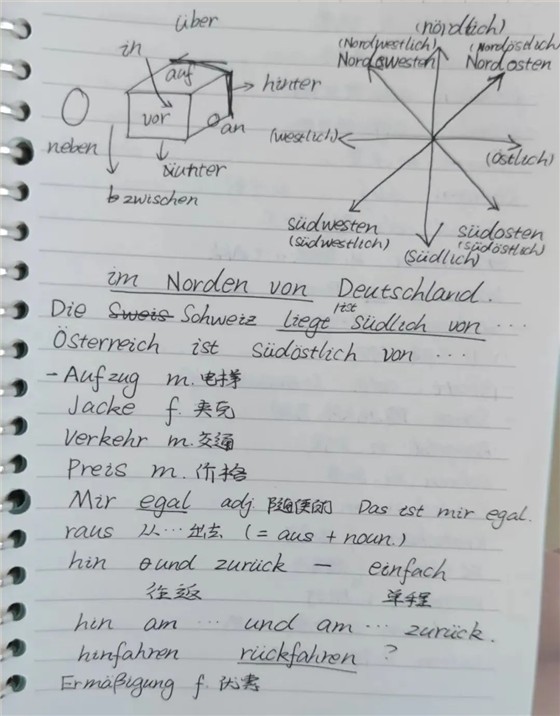 über
in
auf
hinter
vor
an
neben
unter
zwischen
(nördlich)
(Nordwestlich)
Nordwesten
(Nordöstlich)
Nordosten
(westlich)
(östlich)
südwesten
(südwestlich)
südosten
(südöstlich)
(südlich)
im Norden von Deutschland.
ist
Die Sweis Schweiz liegt südlich von ...
Österreich ist südöstlich von ...
- Aufzug m. 电梯
Jacke f. 夹克
Verkehr m. 交通
Preis m. 价格
Mir egal adj. 随便的 Das ist mir egal.
raus 从...出去 (= aus + noun.)
hin und zurück — einfach
往返 单程
hin am ... und am ... zurück.
hinfahren rückfahren ?
Ermäßigung f. 优惠